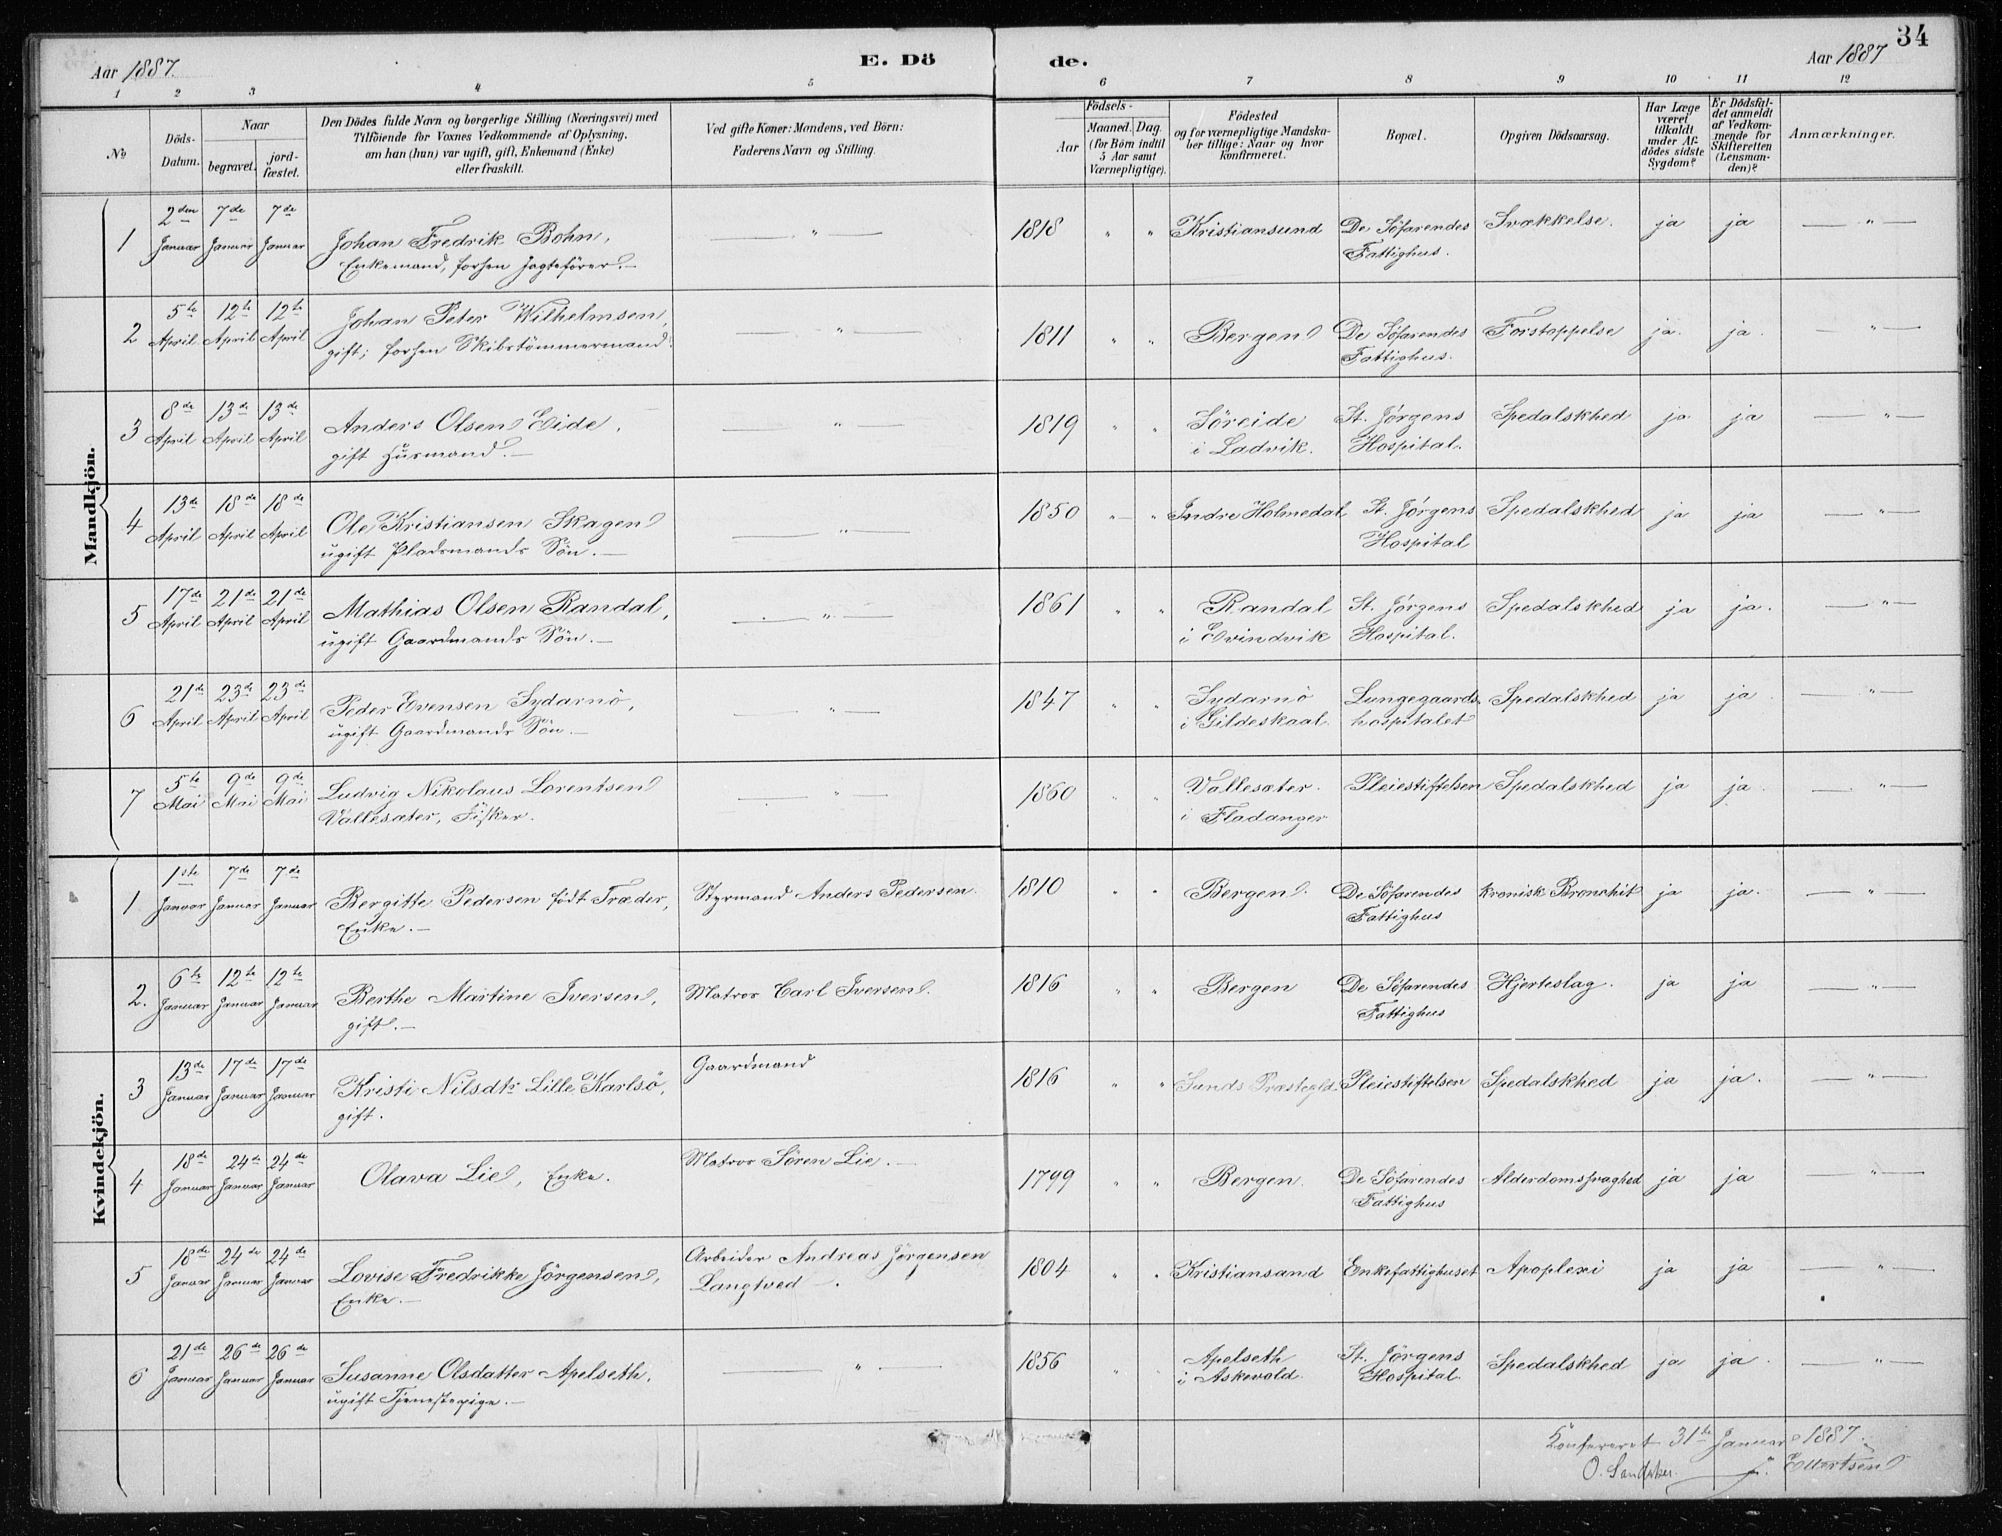 34
Aar 1887.
E. Dö de.
Aar 1887
1 2 3 4 5 6 7 8 9 10 11 12
No
Döds-Datum.
Naar
begravet.
jordfæstet.
Den Dödes fulde Navn og borgerlige Stilling (Næringsvei) med
Tilföiende for Voxnes Vedkommende af Oplysning,
om han (hun) var ugift, gift, Enkemand (Enke)
eller fraskilt.
Ved gifte Koner: Mandens, ved Börn:
Faderens Navn og Stilling.
Födsels-
Aar
Maaned. Dag.
(for Börn indtil
5 Aar samt
Værnepligtige).
Födested
og for værnepligtige Mandskaber tillige: Naar og hvor
konfirmeret.
Bopæl.
Opgiven Dödsaarsag.
Har Læge
været
tilkaldt
under Afdödes sidste
Sygdom?
Er Dödsfaldet anmeldt
af Vedkommende for
Skifteretten
(Lensmanden)?
Anmærkninger.
Mandkjön.
1 2den Januar 7de Januar 7de Januar Johan Fredrik Bohn, — " — 1818 " " Kristiansund De Söfarendes Svækkelse. ja ja — " —
Enkemand, forhen Jagtefører. — Fattighus.
2 5te April 12te April 12te April Johan Peter Wilhelmsen, — " — 1811 " " Bergen De Söfarendes Forstoppelse ja. ja. — " —
gift; forhen Skibstömmermand. Fattighus.
3 8de April 13de April 13de April Anders Olsen Eide, — " — 1819 " " Söreide St. Jørgens Spedalskhed ja ja — " —
gift Husmand. — i Ladvik. Hospital.
4 13de April 18de April 18de April Ole Kristiansen Skagen — " — 1850 " " Indre Holmedal St. Jørgens Spedalskhed ja ja — " —
ugift Pladsmands Sön. — Hospital
5 17de April 21de April 21de April Mathias Olsen Randal, — " — 1861 " " Randal St. Jørgens Spedalskhed ja ja. — " —
ugift Gaardmands Sön. — i Evindvik Hospital.
6 21de April 23de April 23de April Peder Evensen Sydarnö, — " — 1847 " " Sydarnö Lungegaards- Spedalskhed ja ja — " —
ugift Gaardmands Sön. — i Gildeskaal. hospitalet
7 5te Mai 9de Mai 9de Mai Ludvig Nikolaus Lorentsen — " — 1860 " " Vallesæter. Pleiestiftelsen Spedalskhed ja ja. — " —
Vallesæter, Fisker. i Fladanger
Kvindekjön.
1 1ste Januar 7de Januar 7de Januar Bergitte Pedersen födt Træder, Styrmand Anders Pedersen. 1810 " " Bergen. De Söfarendes kronisk Bronchit ja ja. — " —
Enke. — Fattighus
2. 6te Januar 12te Januar 12te Januar Berthe Martine Iversen, Matros Carl Iversen. 1816 " " Bergen De Söfarendes Hjerteslag. ja ja — " —
gift. — Fattighus
3 13de Januar 17de Januar 17de Januar Kristi Nilsdtr Lille Karlsö, Gaardmand 1816 " " Sunds Præstegld. Pleiestiftelsen Spedalskhed ja ja. — " —
gift.
4 18de Januar 24de Januar 24de Januar Olava Lie, Enke. Matros Sören Lie. — 1799 " " Bergen. De Söfarendes Alderdomssvaghed ja ja — " —
Fattighus
5 18de Januar 24de Januar 24de Januar Lovise Fredrikke Jörgensen, Arbeider Andreas Jörgensen 1804 " " Kristiansand Enkefattighuset Apoplexi ja ja — " —
Enke. — Langtved.
6 21de Januar 26de Januar 26de Januar Susanne Olsdatter Apelseth, — " — 1856 " " Apelseth St. Jörgens Spedalskhed ja ja. — " —
ugift Tjenestepige. — i Askevold. Hospital.
Konfereret 31te Januar 1887.
O. Ellertsen